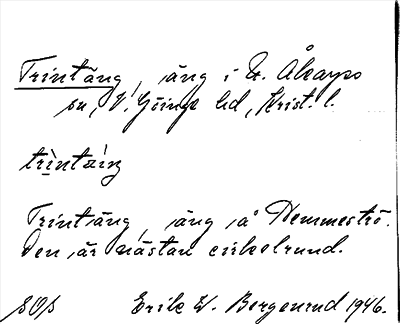 Trintäng, äng i N. Åkarps
sn, V. Göinge hd, Krist. l.
trìntæ̀ŋ
Trintäng, äng å Hemmeströ.
Den är nästan cirkelrund.
Erik W. Bergenrud 1946.